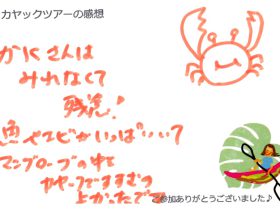 カヤックツアーの感想
かにさんは
みれなくて
残念!
魚やエビがいっぱいいて
マングローブの中を
カヤックですすむの
よかったです
ご参加ありがとうございました♪